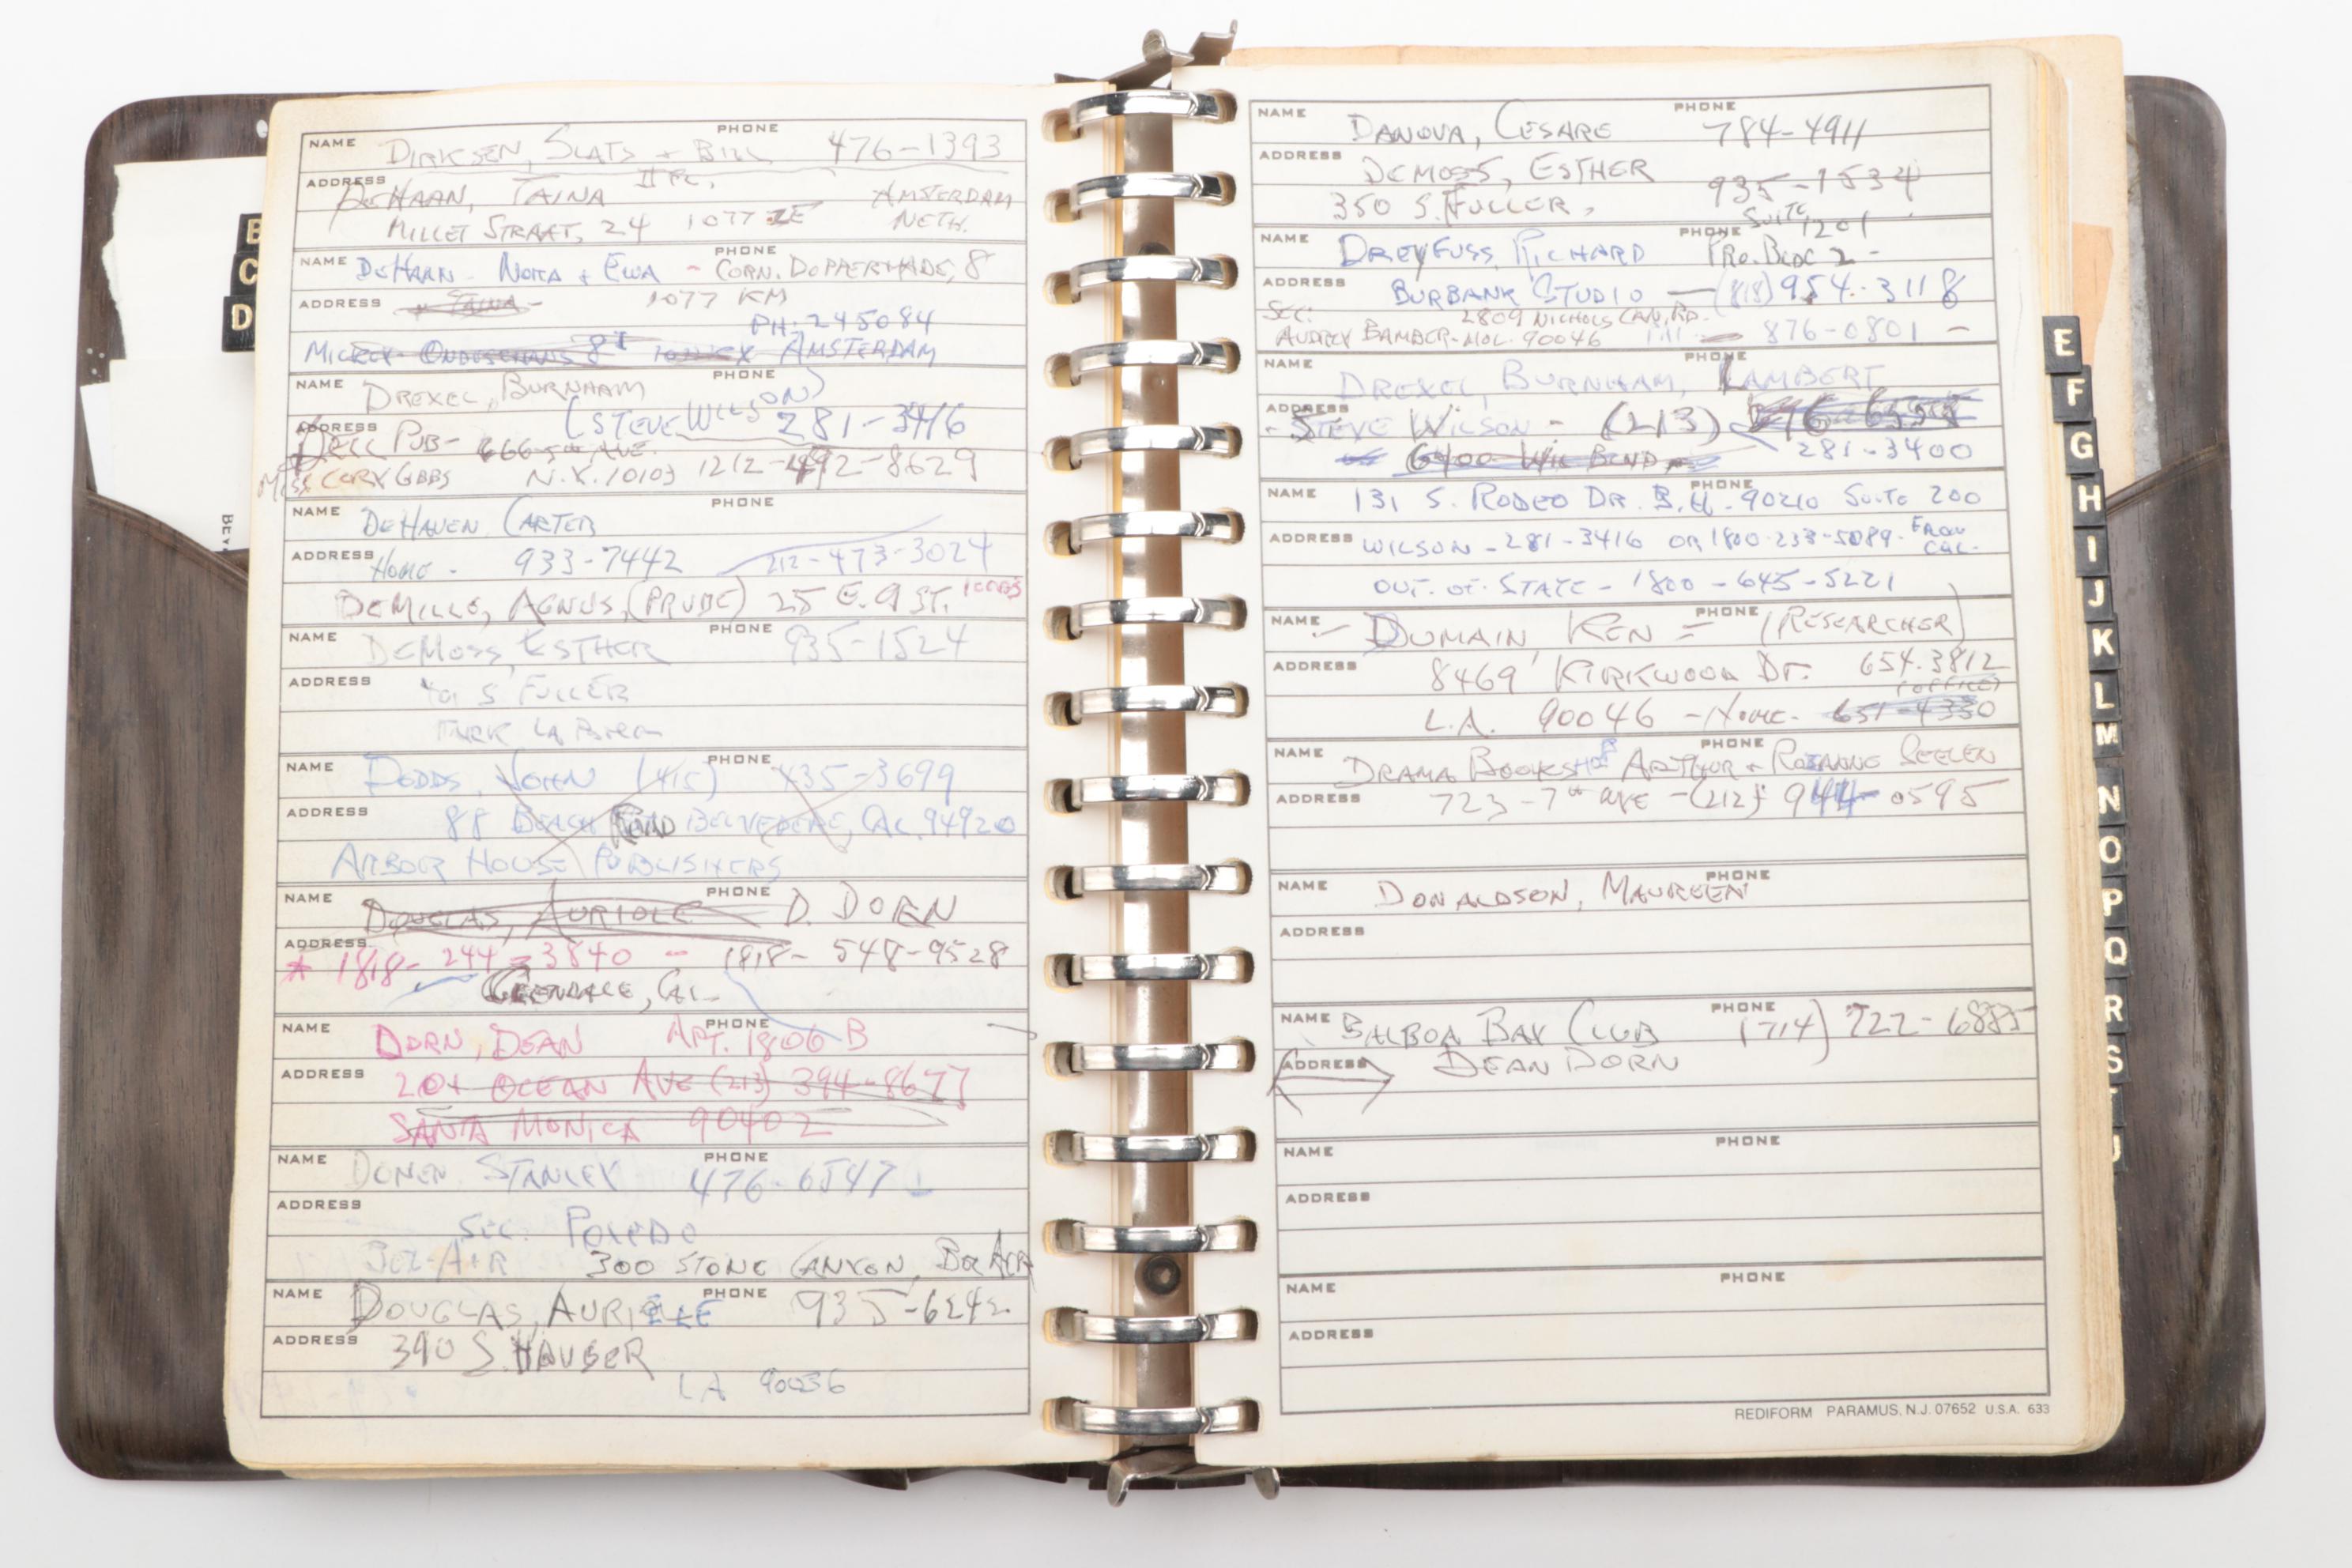 B
C
D
NAME DIRKSEN, SLATS + BILL PHONE 476-1393
ADDRESS DEHAAN, TAINA AMSTERDAM
STRAAT, 24 1077 ZE NETH.
NAME DEHAAN - NORA + EWA - CORN. 8 PHONE
ADDRESS TAINA 1077 KM
PH: 245084
AMSTERDAM
NAME DREXEL, BURNHAM PHONE
ADDRESS (STEVE WILSON) 281-3416
DELL PUB- 666-5th AVE.
MISS CORY GBBS N.Y. 10103 1212-492-8629
NAME DEHAVEN, CARTER PHONE
ADDRESS HOME - 933-7442 212-473-3024
DEMILLE, AGNUS, (PRUDE) 25 E. 9 ST. 10003
NAME DEMOSS, ESTHER PHONE 935-1524
ADDRESS S. FULLER
PARK LA BREA
NAME DODDS, JOHN (415) PHONE 435-3699
ADDRESS 88 BEACH ROAD BELVEDERE, CAL. 94920
ARBOR HOUSE PUBLISHERS
NAME DOUGLAS, AURIOLE PHONE D. DORN
ADDRESS * 1818-244-3840 - 1818-548-9528
GLENDALE, CAL.
NAME DORN, DEAN APT. 1806 B PHONE
ADDRESS 201 OCEAN AVE (213) 394-8677
SANTA MONICA 90402
NAME DONEN, STANLEY PHONE 476-6547
ADDRESS
SEC.
BEL-AIR 300 STONE CANYON, BEL AIR
NAME DOUGLAS, AURIELLE PHONE 935-6242
ADDRESS 390 S. HAUSER
LA 90036
NAME DANOVA, CESARE PHONE 784-4911
ADDRESS DEMOSS, ESTHER
350 S. FULLER, 935-1534
NAME DREYFUSS, RICHARD PHONE SUITE 1201
PRO. BLDG 2 -
ADDRESS BURBANK STUDIO - (818) 954-3118
SEC: 2809 NICHOLS CAN. RD.
AUDREY BAMBER - HOL. 90046 876-0801 -
NAME DREXEL, BURNHAM, LAMBERT PHONE
ADDRESS - STEVE WILSON - (213)
6400 WIL BLVD - 281-3400
NAME 131 S. RODEO DR. B.H. 90210 SUITE 200 PHONE
ADDRESS WILSON - 281-3416 OR 1800-233-5089 - FROM CAL.
OUT-OF-STATE - 1800-645-5221
NAME DUMAIN, KEN = (RESEARCHER) PHONE
ADDRESS 8469 KIRKWOOD DR. 654-3812
(OFFICE)
L.A. 90046 - HOME - 651-4330
NAME DRAMA BOOKSHOP ARTHUR + ROZANNE SEELEN PHONE
ADDRESS 723-7th AVE - (212) 944-0595
NAME DONALDSON, MAUREEN PHONE
ADDRESS
NAME BALBOA BAY CLUB PHONE (714) 722-6885
ADDRESS DEAN DORN
NAME PHONE
ADDRESS
NAME PHONE
ADDRESS
REDIFORM PARAMUS, N.J. 07652 U.S.A. 633
E
F
G
H
I
J
K
L
M
N
O
P
Q
R
S